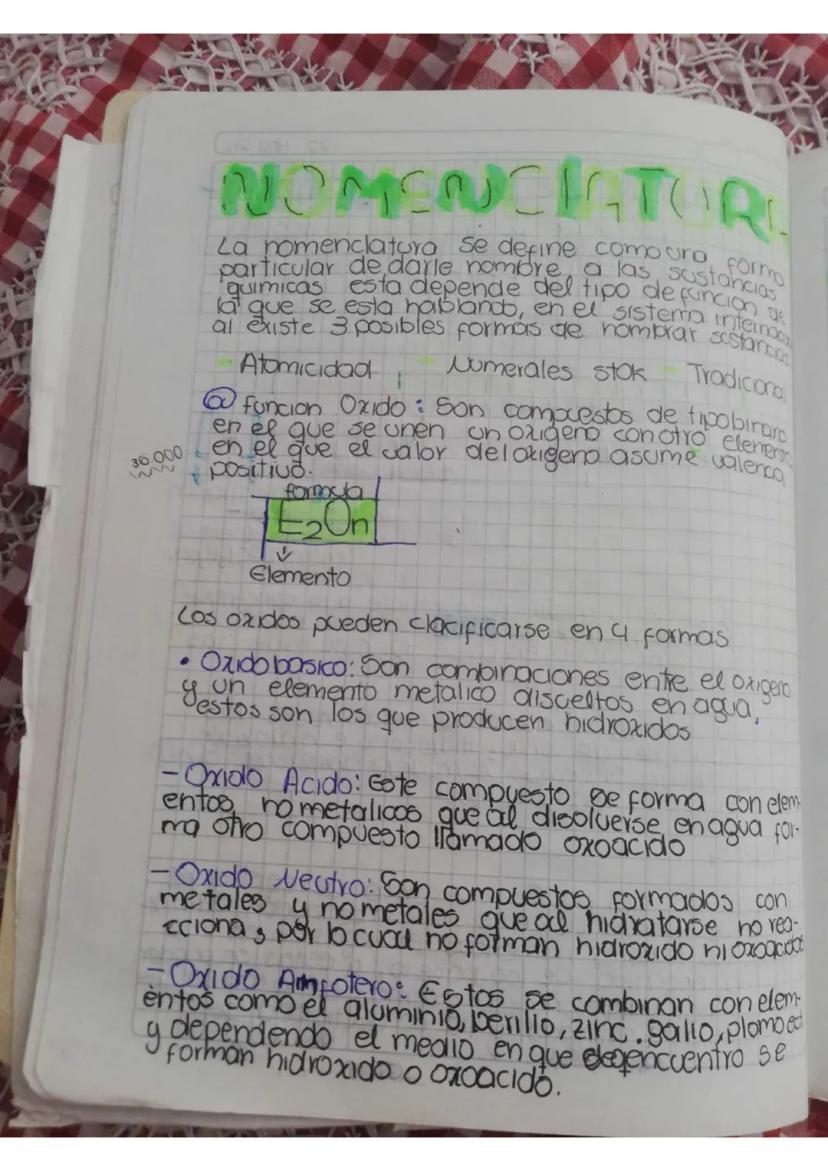 NOMENClATURA
La nomenclatura se define como una forma
particular de darle nombre a las sustancias
quimicas esta depende del tipo de funcion de
la que se esta hablando, en el sistema internaci
al existe 3 posibles formas de nombrar sustancias
- Atomicidad - Numerales stok - Tradiconal
@ funcion Oxido: Son compuestos de tipo binaro
en el que se unen un oxigeno con otro elemento
en el que el valor del oxigeno asume valencia
36.000
positivo.
formula
E2On
Elemento
Los oxidos pueden clacificarse en 4 formas
• Oxido basico: Son combinaciones entre el oxigeno
y un elemento metalico disueltos en agua,
estos son los que producen hidroxidos
- Oxido Acido: Este compuesto se forma con elem-
entos no metalicos que al disolverse en agua for-
ma otro compuesto llamado oxoacido
- Oxido Neutro: Son compuestos formados con
metales y no metales que al hidratarse no rea-
cciona, por lo cual no forman hidroxido ni oxoacido
- Oxido Amfotero: Estos se combinan con elem-
entos como el aluminio, berilio, zinc. galio, plomo ect
y dependendo el medio en que encuentro se
forman hidroxido o oxoacido.